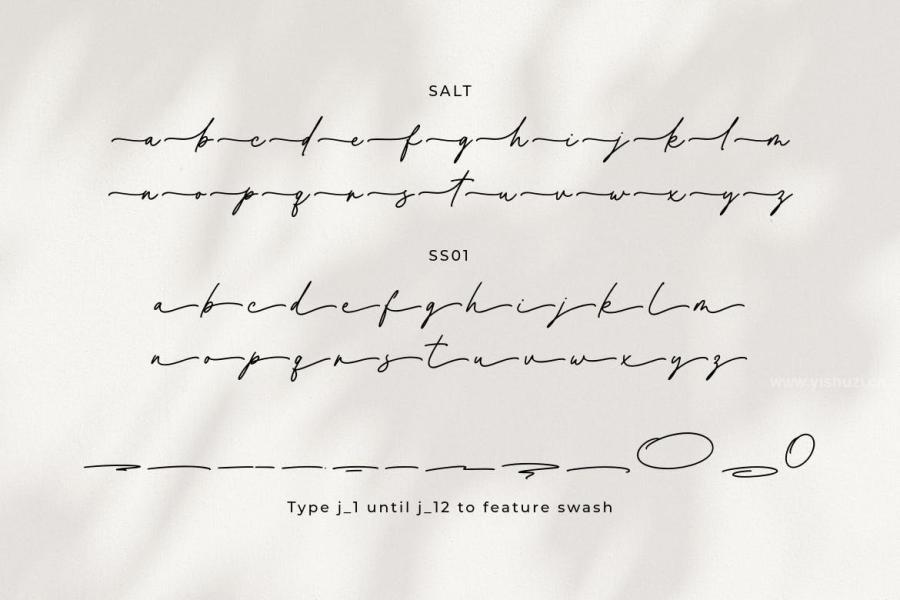 SALT
a b c d e f g h i j k l m
n o p q r s t u v w x y z
SS01
a b c d e f g h i j k l m
n o p q r s t u v w x y z
www.yishuzi.cn
Type j_1 until j_12 to feature swash